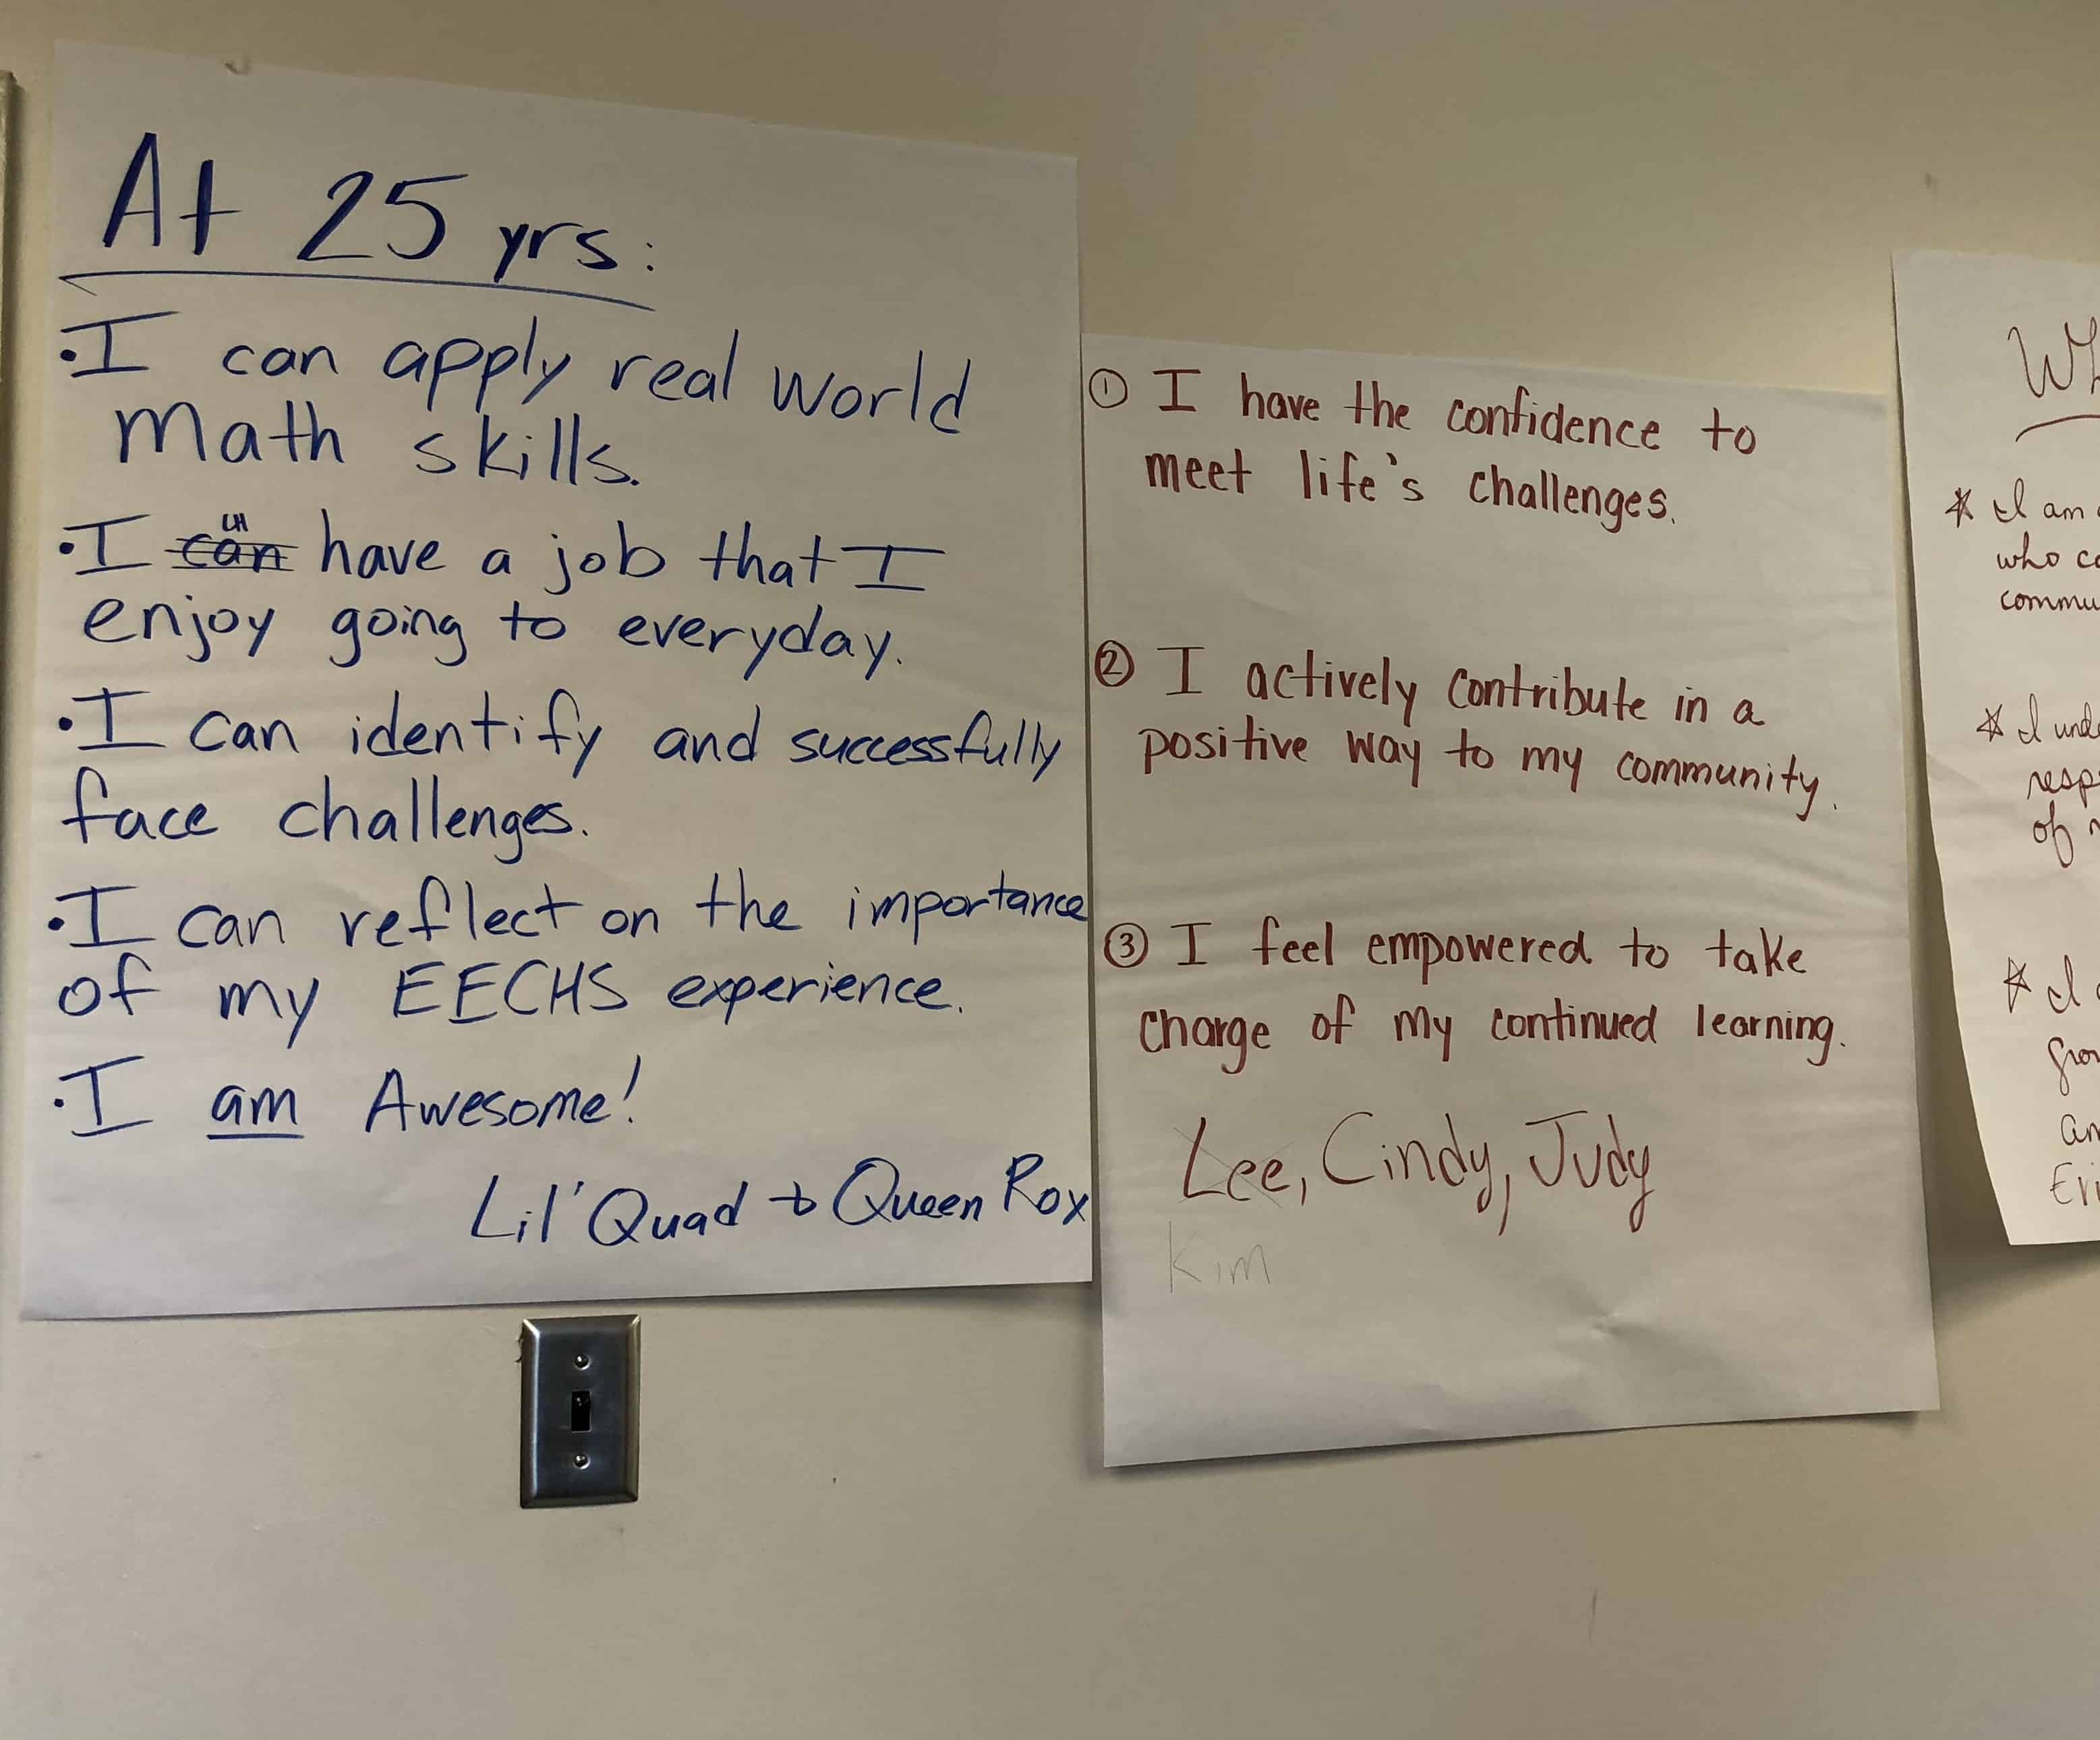 At 25 yrs:
• I can apply real world
math skills.
LH
• I can have a job that I
enjoy going to everyday.
• I can identify and successfully
face challenges.
• I can reflect on the importance
of my EECHS experience.
• I am Awesome!
Lil' Quad + Queen Rox
① I have the confidence to
meet life's challenges.
② I actively contribute in a
positive way to my community.
③ I feel empowered to take
charge of my continued learning.
Lee, Cindy, Judy
Kim
* I am
who
* I
of
* I